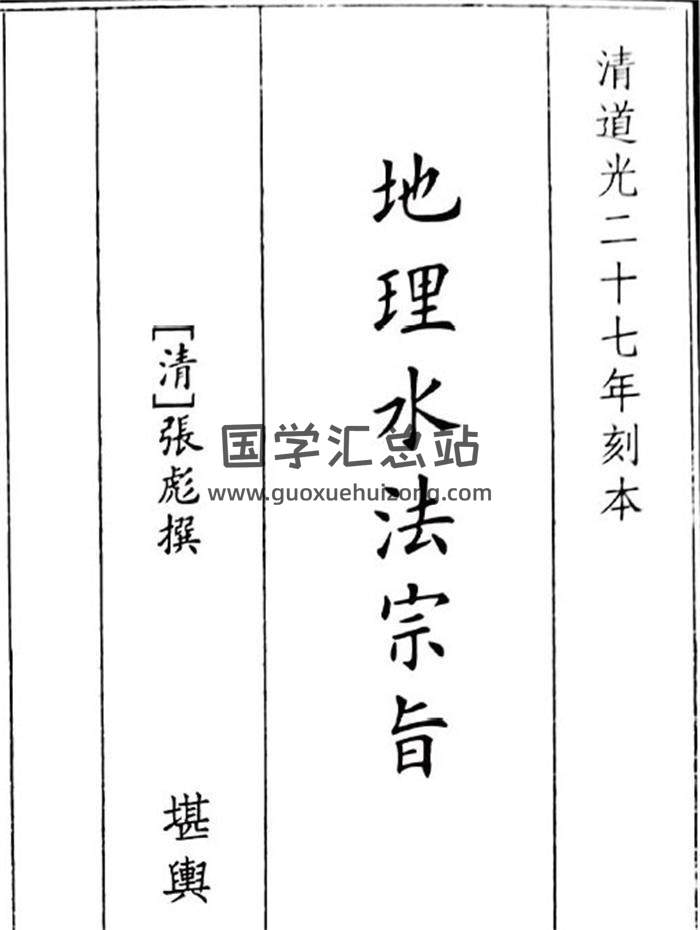 清道光二十七年刻本
地理水法宗旨
[清]張彪撰
堪輿
国学汇总站
www.guoxuehuizong.com